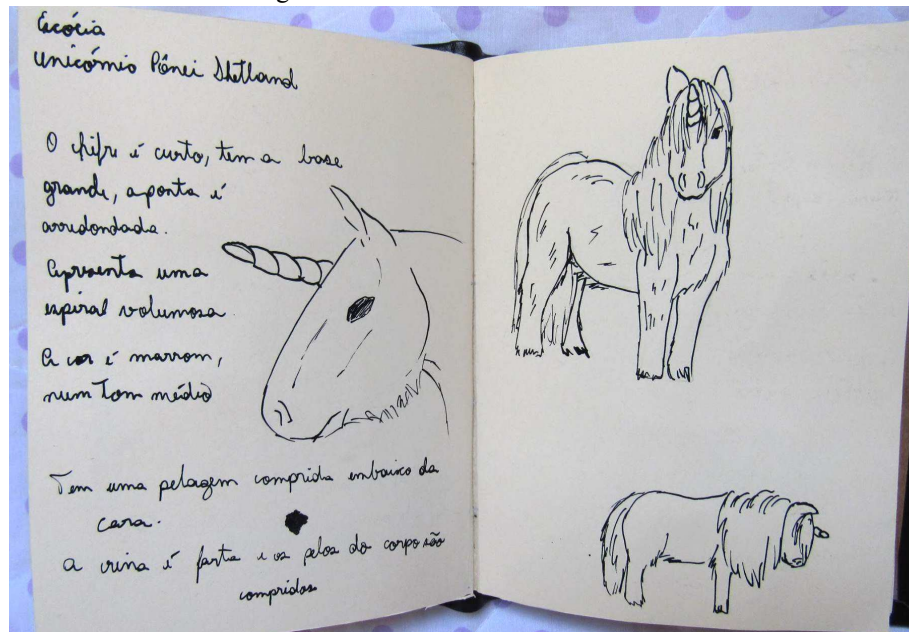 Escócia
Unicórnio Pônei Shetland
O chifre é curto, tem a base
grande, a ponta é
arredondada.
Apresenta uma
espiral volumosa
A cor é marrom,
num tom médio
Tem uma pelagem comprida embaixo da
cara.
A crina é farta e os pelos do corpo são
compridos